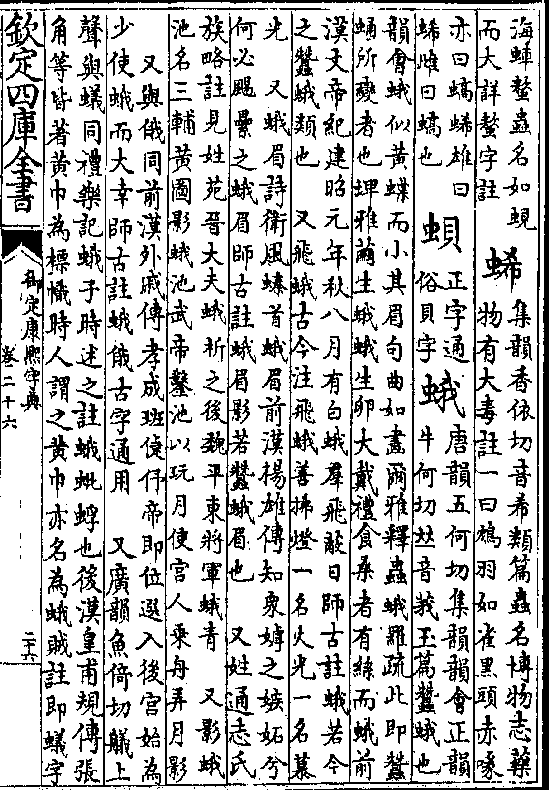 海蟑鼇蟲名如蜆 集韻香依切音希類篇蟲名博物志藥
而大詳鼇字註 物有大毒註一曰鴆羽如雀黑頭赤喙
亦曰螭雄曰 蛽 正字通 蛾 唐韻五何切集韻韻會正韻
雌曰螭也 俗貝字 牛何切𠀤音莪玉篇蠶蛾也
韻會蛾似黃蝶而小其眉句曲如畫爾雅釋蟲蛾羅疏此即蠶
蛹所變者也埤雅繭生蛾蛾生卵大戴禮食桑者有絲而蛾前
漢文帝紀建昭元年秋八月有白蛾羣飛蔽日師古註蛾若今
之蠶蛾類也 又飛蛾古今注飛蛾善拂燈一名火光一名慕
光 又蛾眉詩衛風螓首蛾眉前漢揚雄傳知衆嫭之嫉妬兮
何必颺纍之蛾眉師古註蛾眉影若蠶蛾眉也 又姓通志氏
族略註見姓苑晉大夫蛾析之後魏平東將軍蛾青 又影蛾
池名三輔黃圖影蛾池武帝鑿池以玩月使宮人乘舟弄月影
又與俄同前漢外戚傳孝成班倢伃帝即位選入後宮始為
少使蛾而大幸師古註蛾俄古字通用 又廣韻魚倚切艤上
聲與蟻同禮樂記蛾子時述之註蛾蚍蜉也後漢皇甫規傳張
角等皆著黃巾為標幟時人謂之黃巾亦名為蛾賊註即蟻字
欽定四庫全書
御定康熙字典
卷二十六
二十六